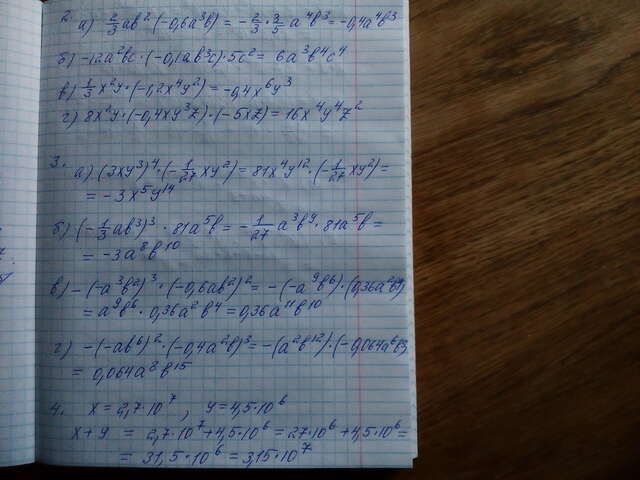 2. а) 2/3ab² · (-0,6a³b) = -2/3 · 3/5 a⁴b³ = -0,4a⁴b³
б) -12a²bc · (-0,1ab³c) · 5c² = 6a³b⁴c⁴
в) 1/3x²y · (-0,2x⁴y²) = -0,4x⁶y³
г) 8x²y · (-0,4xy³z) · (-5xz) = 16x⁴y⁴z²
3. а) (3xy³)⁴ · (-1/27xy²) = 81x⁴y¹² · (-1/27xy²) =
= -3x⁵y¹⁴
б) (-1/3ab³)³ · 81a⁵b = -1/27a³b⁹ · 81a⁵b =
= -3a⁸b¹⁰
в) -(-a³b²)³ · (-0,6ab²)² = -(-a⁹b⁶) · (0,36a²b⁴)
= a⁹b⁶ · 0,36a²b⁴ = 0,36a¹¹b¹⁰
г) -(-ab⁶)² · (-0,4a²b)³ = -(a²b¹²) · (-0,064a⁶b³)
= 0,064a⁸b¹⁵
4. x = 2,7·10⁷, y = 4,5·10⁶
x + y = 2,7·10⁷ + 4,5·10⁶ = 27·10⁶ + 4,5·10⁶ =
= 31,5·10⁶ = 3,15·10⁷